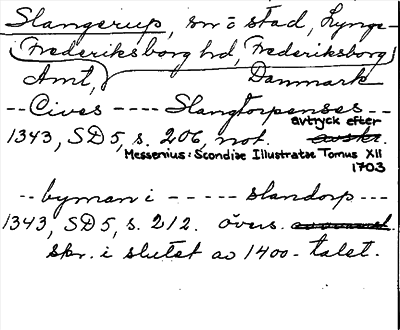 Slangerup, sn o stad, Lynge-
Frederiksborg hd, Frederiksborg
Amt, Danmark
-- Cives ---- Slangtorpenses --
avtryck efter
1343, SD 5, s. 206, not. avskr.
Messenius: Scondiæ Illustratæ Tomus XII
1703
-- byman i ----- slandorp ---
1343, SD 5, s. 212. övers.
skr. i slutet av 1400-talet.